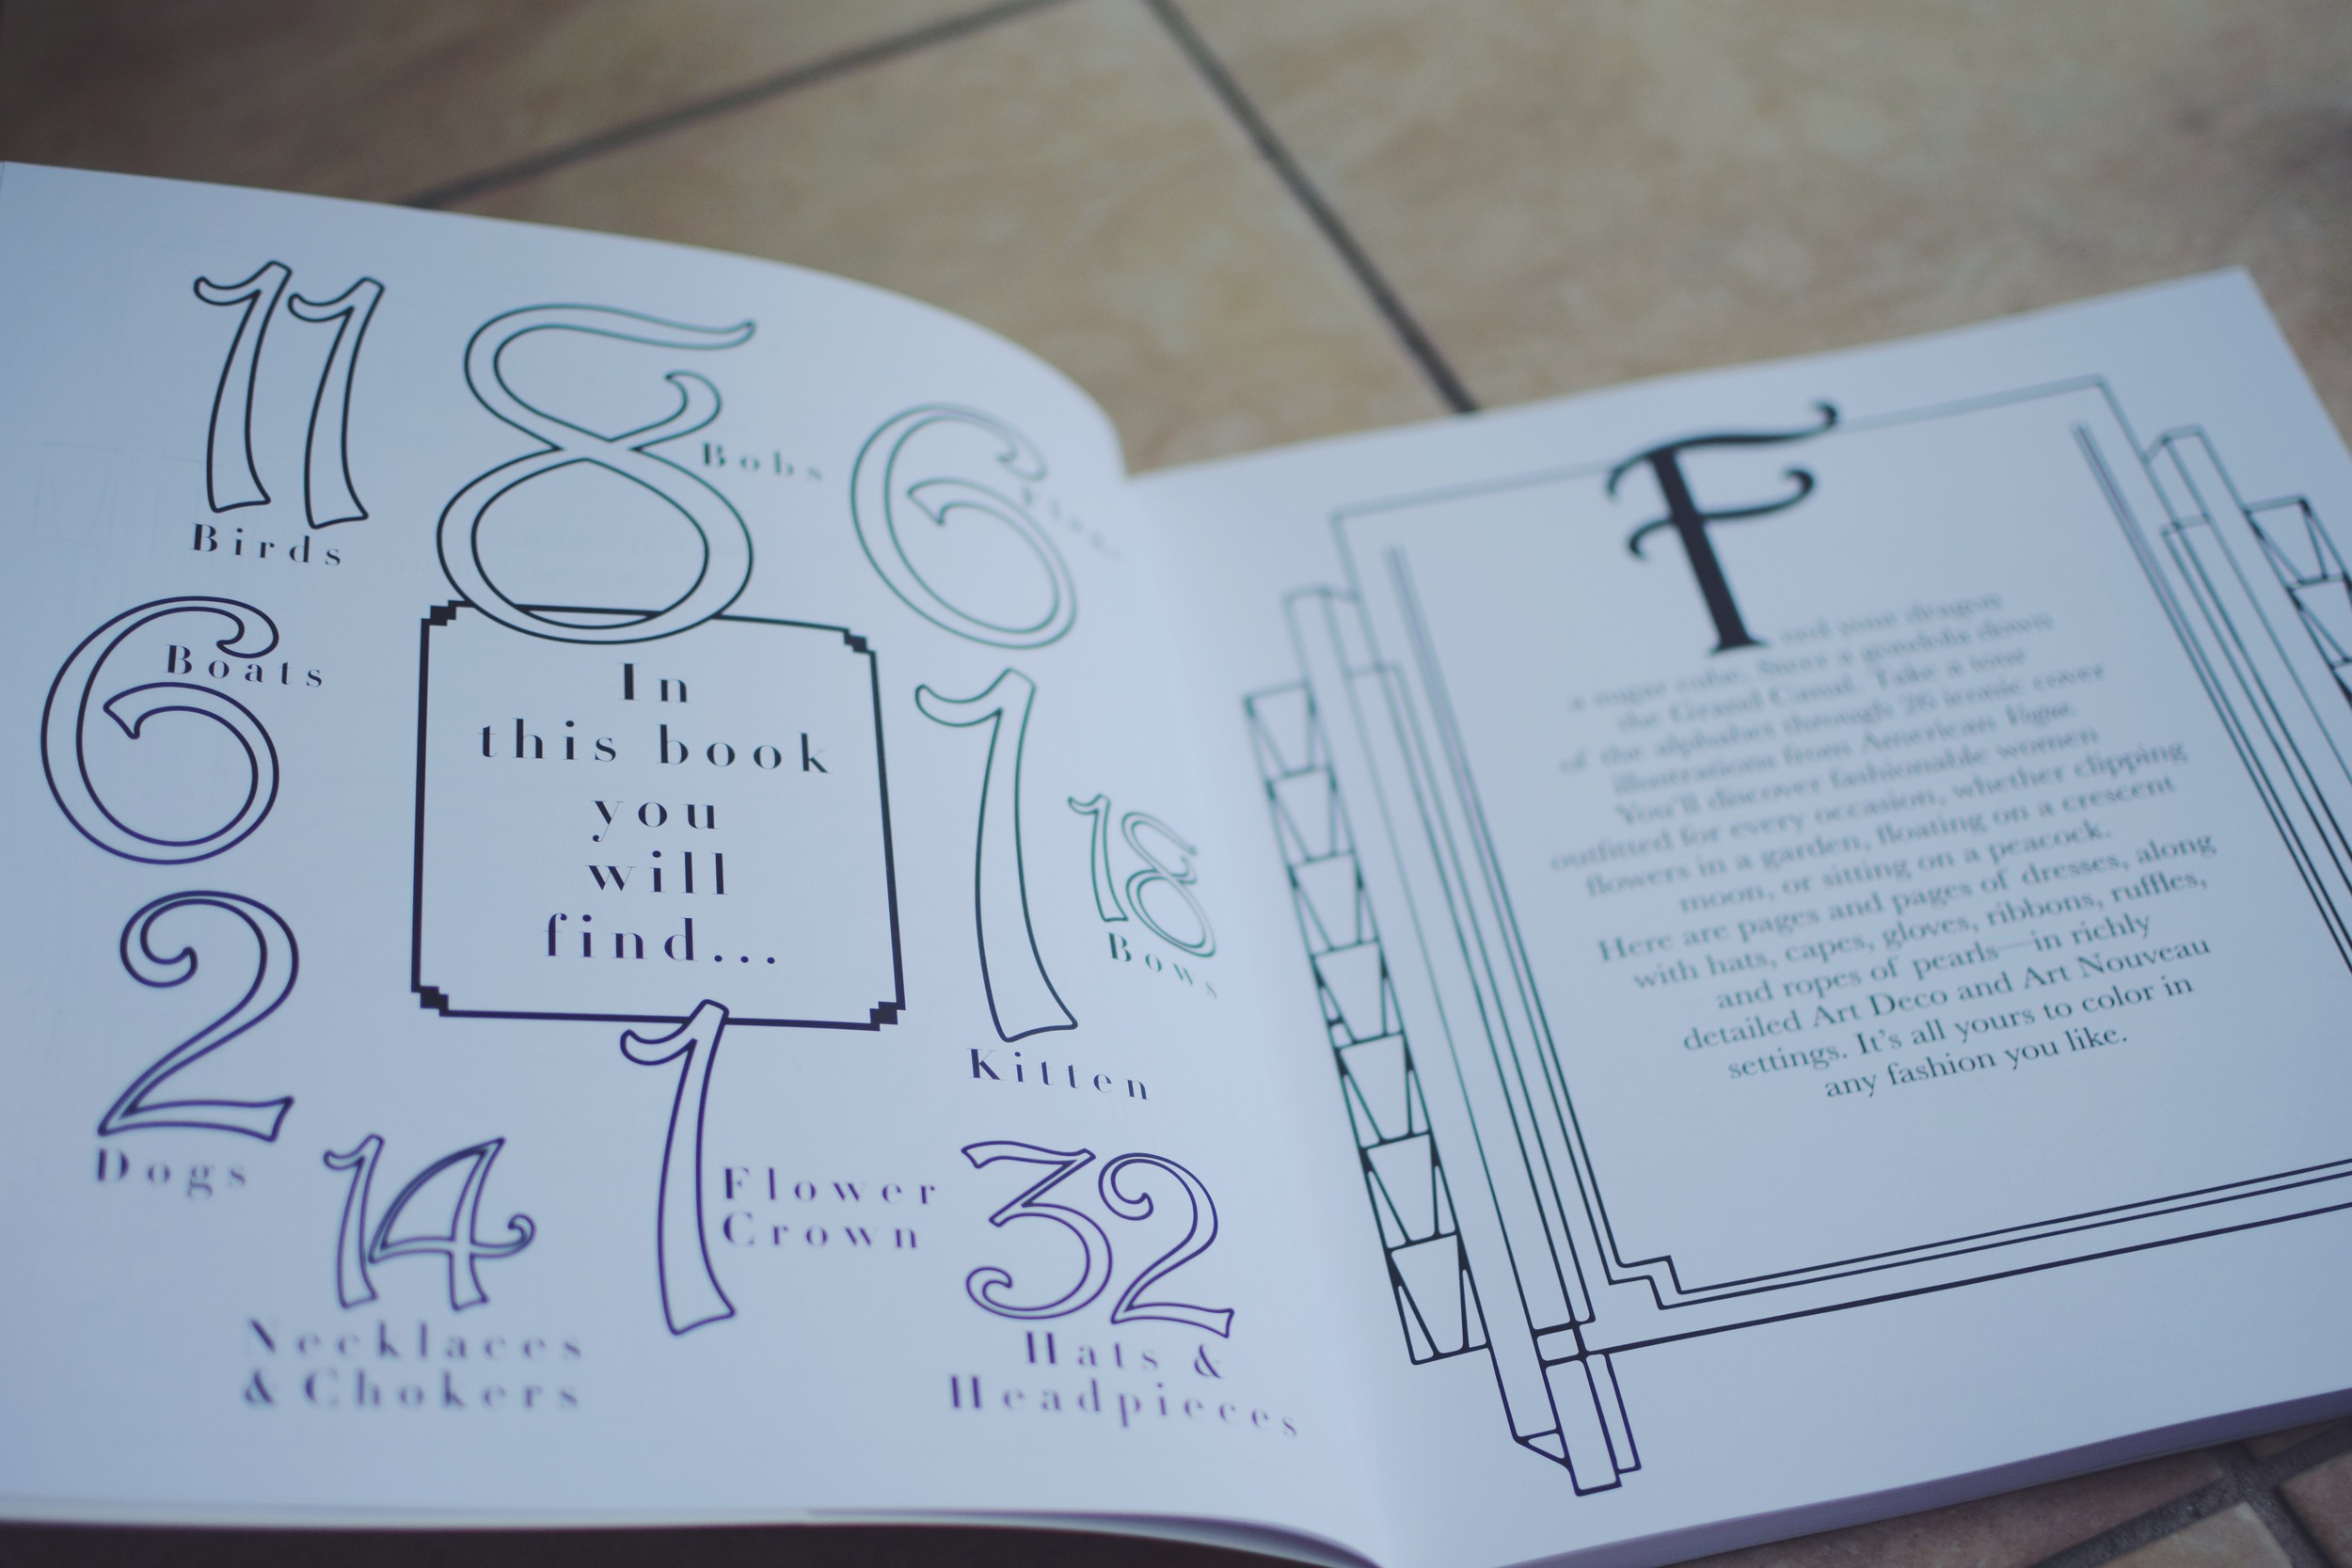 11
Birds
8
Bobs
6
6
Boats
In
this book
you
will
find...
1
Kitten
18
Bows
2
Dogs
14
Necklaces
& Chokers
1
Flower
Crown
32
Hats &
Headpieces
F
eed your dragon
a sugar cube. Steer a gondola down
the Grand Canal. Take a tour
of the alphabet through 26 iconic cover
illustrations from American Vogue.
You'll discover fashionable women
outfitted for every occasion, whether clipping
flowers in a garden, floating on a crescent
moon, or sitting on a peacock.
Here are pages and pages of dresses, along
with hats, capes, gloves, ribbons, ruffles,
and ropes of pearls—in richly
detailed Art Deco and Art Nouveau
settings. It's all yours to color in
any fashion you like.